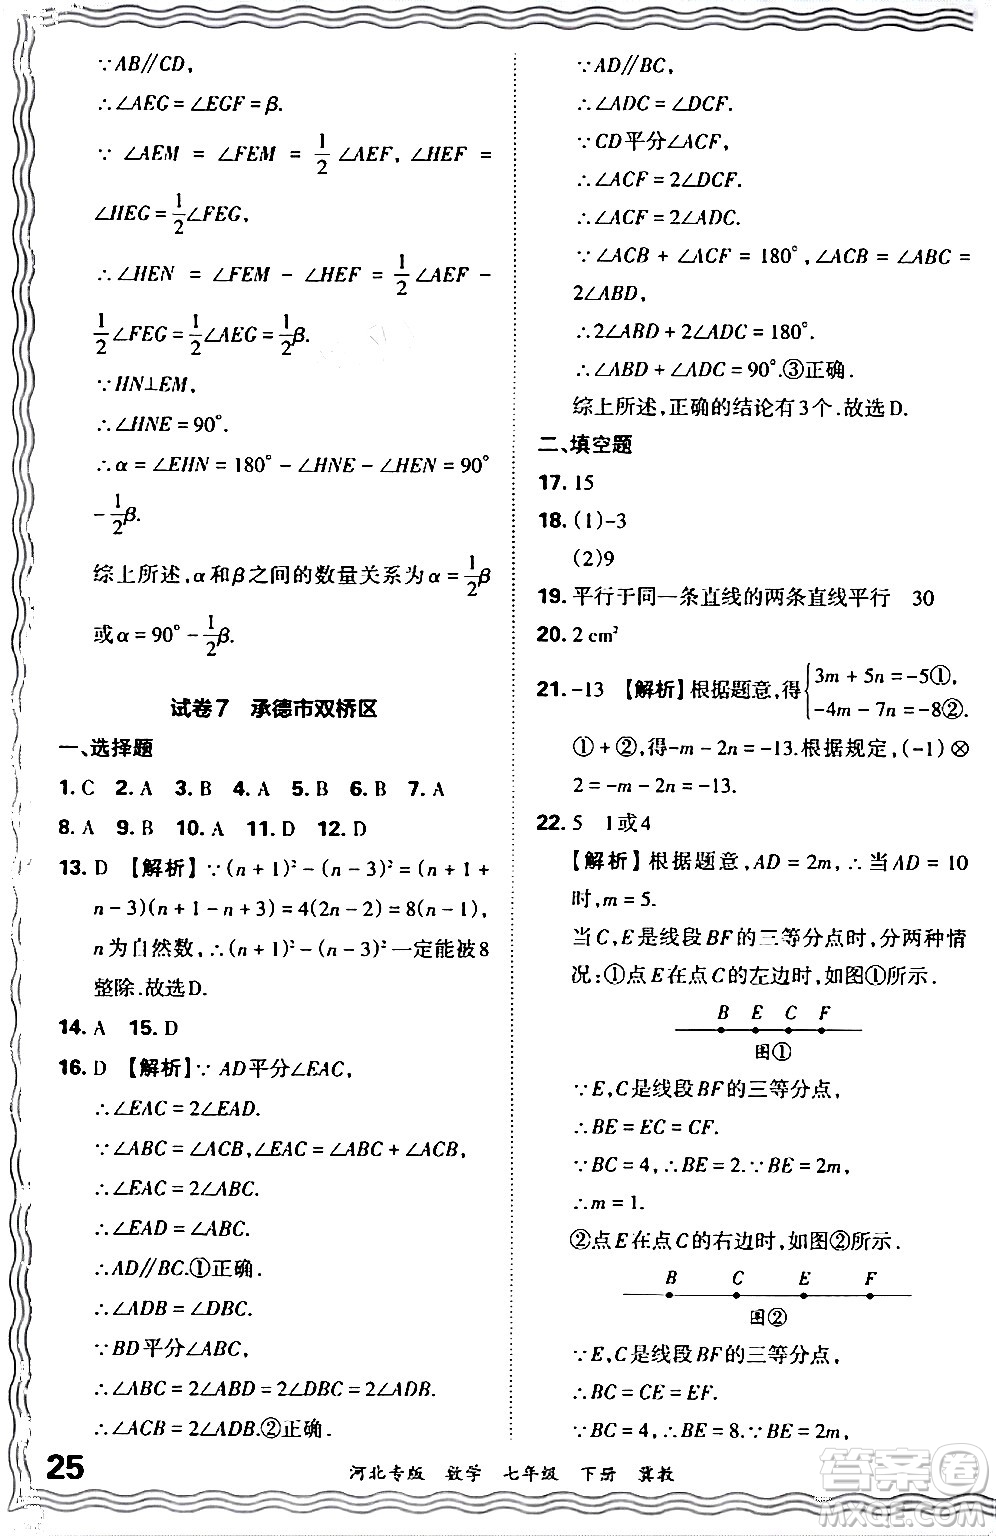 ∵AB∥CD,
∴∠AEG = ∠EGF = β.
∵ ∠AEM = ∠FEM = 1/2 ∠AEF, ∠HEF =
∠HEG = 1/2∠FEG,
∴ ∠HEN = ∠FEM − ∠HEF = 1/2 ∠AEF −
1/2 ∠FEG = 1/2∠AEG = 1/2β.
∵HN⊥EM,
∴∠HNE = 90°.
∴α = ∠EHN = 180° − ∠HNE − ∠HEN = 90°
− 1/2β.
综上所述,α和β之间的数量关系为α = 1/2β
或α = 90° − 1/2β.
试卷7 承德市双桥区
一、选择题
1. C 2. A 3. B 4. A 5. B 6. B 7. A
8. A 9. B 10. A 11. D 12. D
13. D 【解析】∵(n + 1)² − (n − 3)² = (n + 1 +
n − 3)(n + 1 − n + 3) = 4(2n − 2) = 8(n − 1),
n为自然数,∴(n + 1)² − (n − 3)²一定能被8
整除.故选D.
14. A 15. D
16. D 【解析】∵ AD平分∠EAC,
∴∠EAC = 2∠EAD.
∵∠ABC = ∠ACB,∠EAC = ∠ABC + ∠ACB,
∴∠EAC = 2∠ABC.
∴∠EAD = ∠ABC.
∴AD∥BC.①正确.
∴∠ADB = ∠DBC.
∵BD平分∠ABC,
∴∠ABC = 2∠ABD = 2∠DBC = 2∠ADB.
∴∠ACB = 2∠ADB.②正确.
∵AD∥BC,
∴∠ADC = ∠DCF.
∵CD平分∠ACF,
∴∠ACF = 2∠DCF.
∴∠ACF = 2∠ADC.
∵∠ACB + ∠ACF = 180°,∠ACB = ∠ABC =
2∠ABD,
∴2∠ABD + 2∠ADC = 180°.
∴∠ABD + ∠ADC = 90°.③正确.
综上所述,正确的结论有3个.故选D.
二、填空题
17. 15
18. (1)−3
(2)9
19. 平行于同一条直线的两条直线平行 30
20. 2 cm²
21. −13 【解析】根据题意,得{3m + 5n = −5①,
−4m − 7n = −8②.
① + ②,得−m − 2n = −13.根据规定,(−1)⊗
2 = −m − 2n = −13.
22. 5 1或4
【解析】根据题意,AD = 2m,∴当AD = 10
时,m = 5.
当C,E是线段BF的三等分点时,分两种情
况:①点E在点C的左边时,如图①所示.
B E C F
图①
∵E,C是线段BF的三等分点,
∴BE = EC = CF.
∵BC = 4,∴BE = 2.∵BE = 2m,
∴m = 1.
②点E在点C的右边时,如图②所示.
B C E F
图②
∵E,C是线段BF的三等分点,
∴BC = CE = EF.
∵BC = 4,∴BE = 8.∵BE = 2m,
25 河北专版 数学 七年级 下册 冀教
答案圈
MXQE.COM